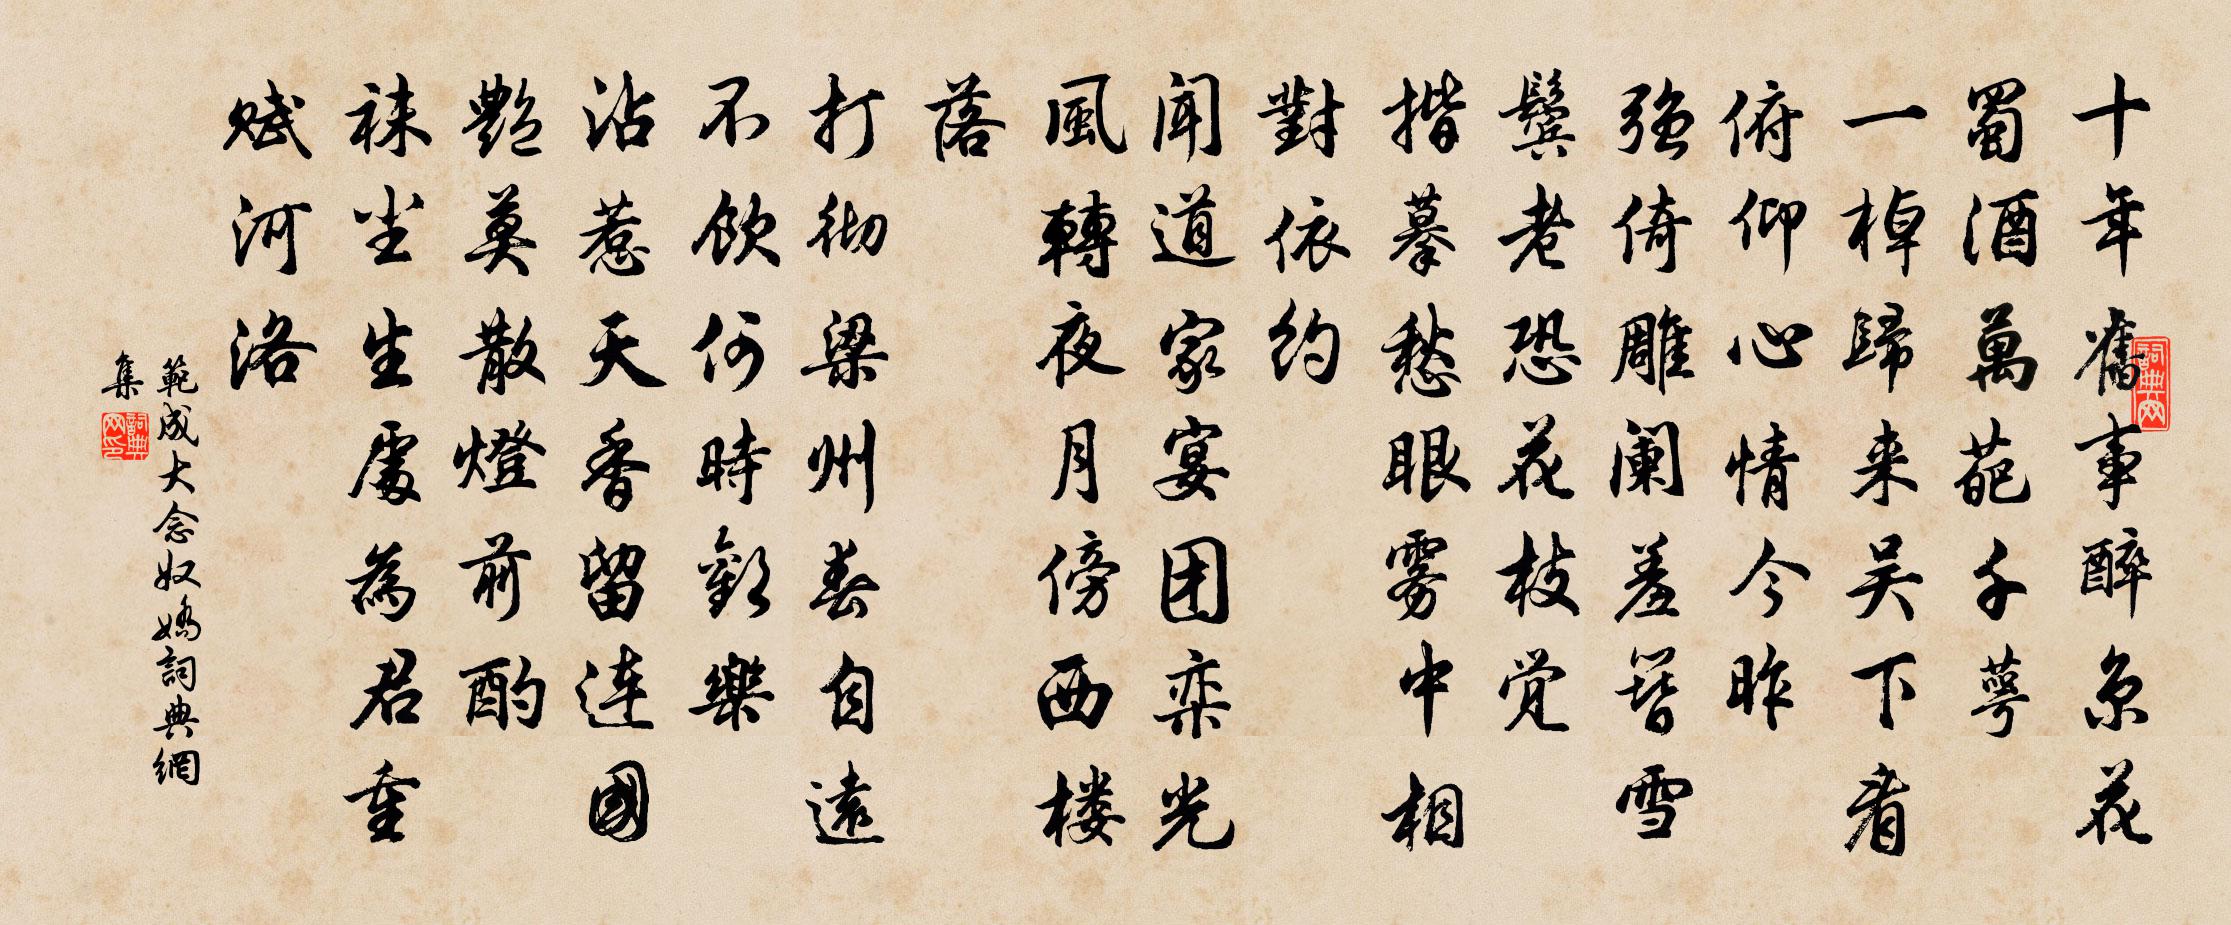 十年舊事醉京花
蜀酒萬葩千萼
一棹歸来吴下看
俯仰心情今昨
强倚雕阑羞簪雪
鬓老恐花枝觉
揩摹愁眼雾中相
對依约
闻道家宴团栾光
風轉夜月傍西楼
落
打彻梁州春自遠
不飲何時歡樂
沾惹天香留連國
艷莫散燈前酌
袜尘生處為君重
赋河洛
範成大念奴嬌詞典網
集
詞典网
詞典网印